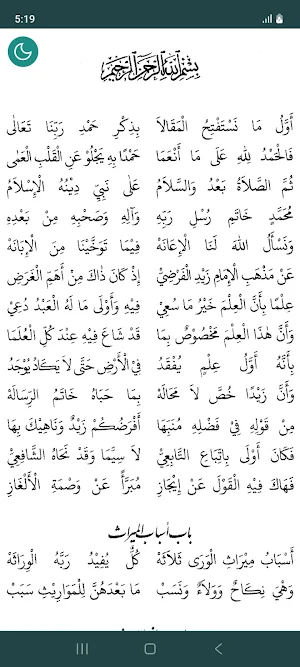 5:19
بِسْمِ اللهِ الرَّحْمَنِ الرَّحِيْمِ
أَوَّلُ مَا نَسْتَفْتِحُ الْمَقَالَا بِذِكْرِ حَمْدِ رَبِّنَا تَعَالَى
فَالْحَمْدُ لِلّٰهِ عَلَى مَا أَنْعَمَا حَمْدًا بِهِ يَجْلُوْ عَنِ الْقَلْبِ الْعَمَى
ثُمَّ الصَّلَاةُ بَعْدُ وَالسَّلَامُ عَلَى نَبِيٍّ دِيْنُهُ الْإِسْلَامُ
مُحَمَّدٍ خَاتِمِ رُسْلِ رَبِّهِ وَآلِهِ وَصَحْبِهِ مِنْ بَعْدِهِ
وَنَسْأَلُ اللهَ لَنَا الْإِعَانَهْ فِيْمَا تَوَخَّيْنَا مِنَ الْإِبَانَهْ
عَنْ مَذْهَبِ الْإِمَامِ زَيْدِ الْفَرَضِيْ إِذْ كَانَ ذَاكَ مِنْ أَهَمِّ الْغَرَضِ
عِلْمًا بِأَنَّ الْعِلْمَ خَيْرُ مَا سُعِيْ فِيْهِ وَأَوْلَى مَا لَهُ الْعَبْدُ دُعِيْ
وَأَنَّ هٰذَا الْعِلْمَ مَخْصُوْصٌ بِمَا قَدْ شَاعَ فِيْهِ عِنْدَ كُلِّ الْعُلَمَا
بِأَنَّهُ أَوَّلُ عِلْمٍ يُفْقَدُ فِي الْأَرْضِ حَتَّى لَا يَكَادُ يُوْجَدُ
وَأَنَّ زَيْدًا خُصَّ لَا مَحَالَهْ بِمَا حَبَاهُ خَاتَمُ الرِّسَالَهْ
مِنْ قَوْلِهِ فِيْ فَضْلِهِ مُنَبِّهَا أَفْرَضُكُمْ زَيْدٌ وَنَاهِيْكَ بِهَا
فَكَانَ أَوْلَى بِاتِّبَاعِ التَّابِعِيْ لَا سِيَّمَا وَقَدْ نَحَاهُ الشَّافِعِيْ
فَهَاكَ فِيْهِ الْقَوْلَ عَنْ إِيْجَازِ مُبَرَّأً عَنْ وَصْمَةِ الْأَلْغَازِ
باب أسباب الميراث
أَسْبَابُ مِيْرَاثِ الْوَرَى ثَلَاثَهْ كُلٌّ يُفِيْدُ رَبَّهُ الْوِرَاثَهْ
وَهْيَ نِكَاحٌ وَوَلَاءٌ وَنَسَبْ مَا بَعْدَهُنَّ لِلْمَوَارِيْثِ سَبَبْ